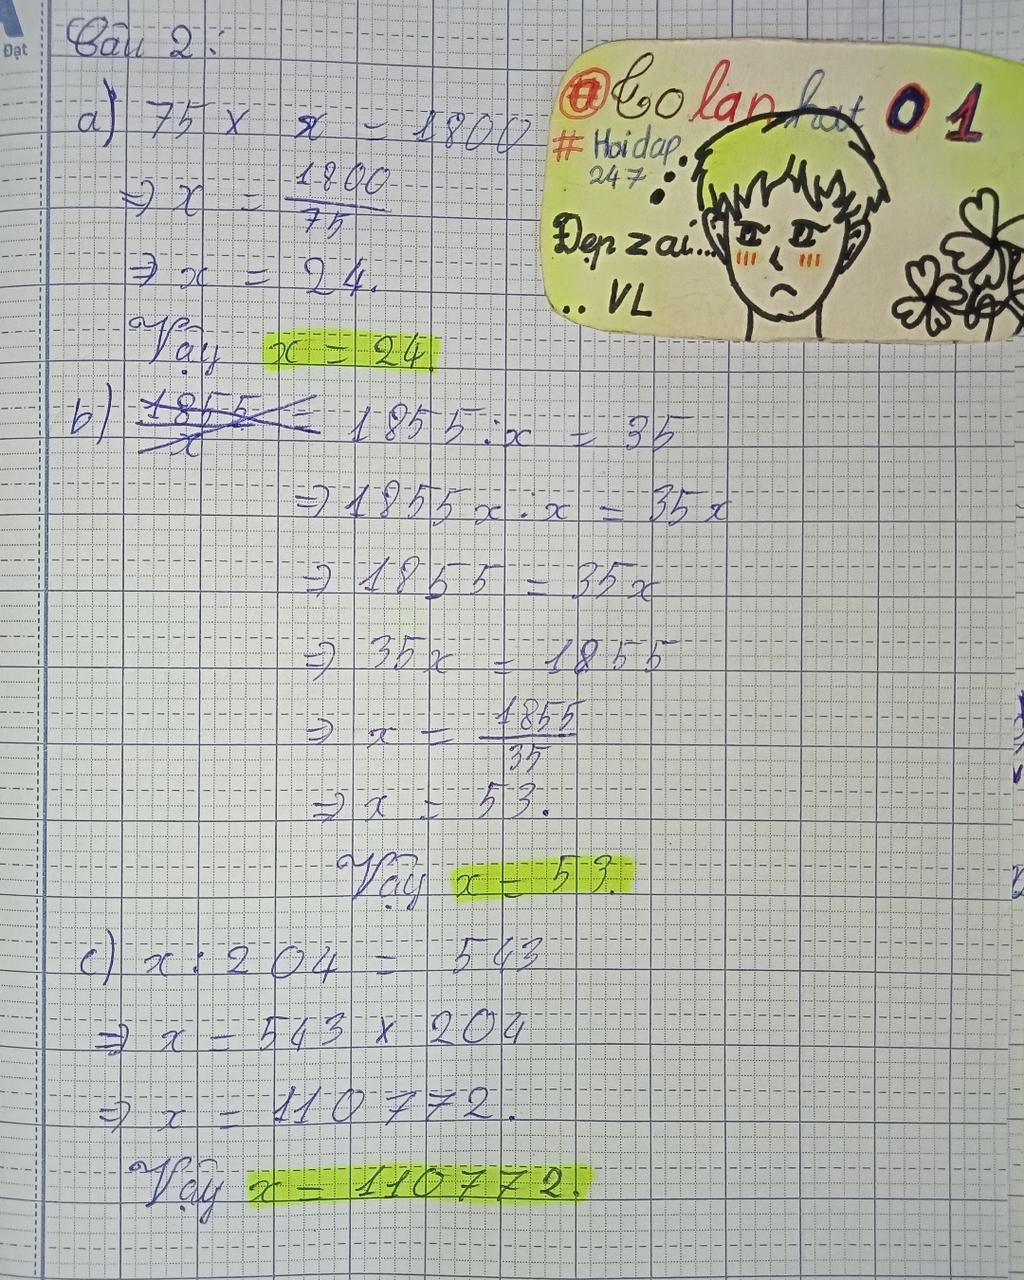 Đạt
Câu 2:
a) 75 x x = 1800
⇒ x = 1800/75
⇒ x = 24.
Vậy x = 24.
b) 1855/x = 1855 : x = 35
⇒ 1855x : x = 35x
⇒ 1855 = 35x
⇒ 35x = 1855
⇒ x = 1855/35
⇒ x = 53.
Vậy x = 53.
c) x : 204 = 543
⇒ x = 543 x 204
⇒ x = 110772.
Vậy x = 110772.
lan hat 01
# Hoidap
247
Đẹp zai...
.. VL